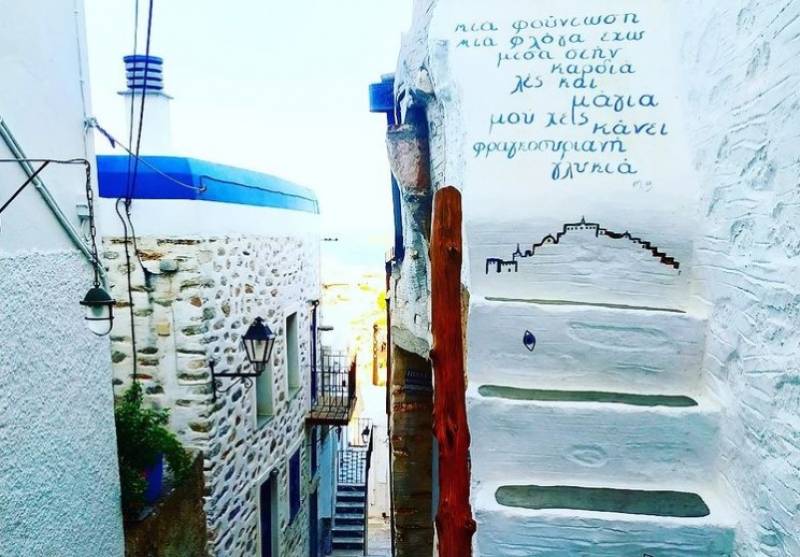 μια φούντωση
μια φλόγα έχω
μέσα στην
καρδιά
λές και
μάγια
μού χεις
κάνει
φραγκοσυριανή
γλυκιά